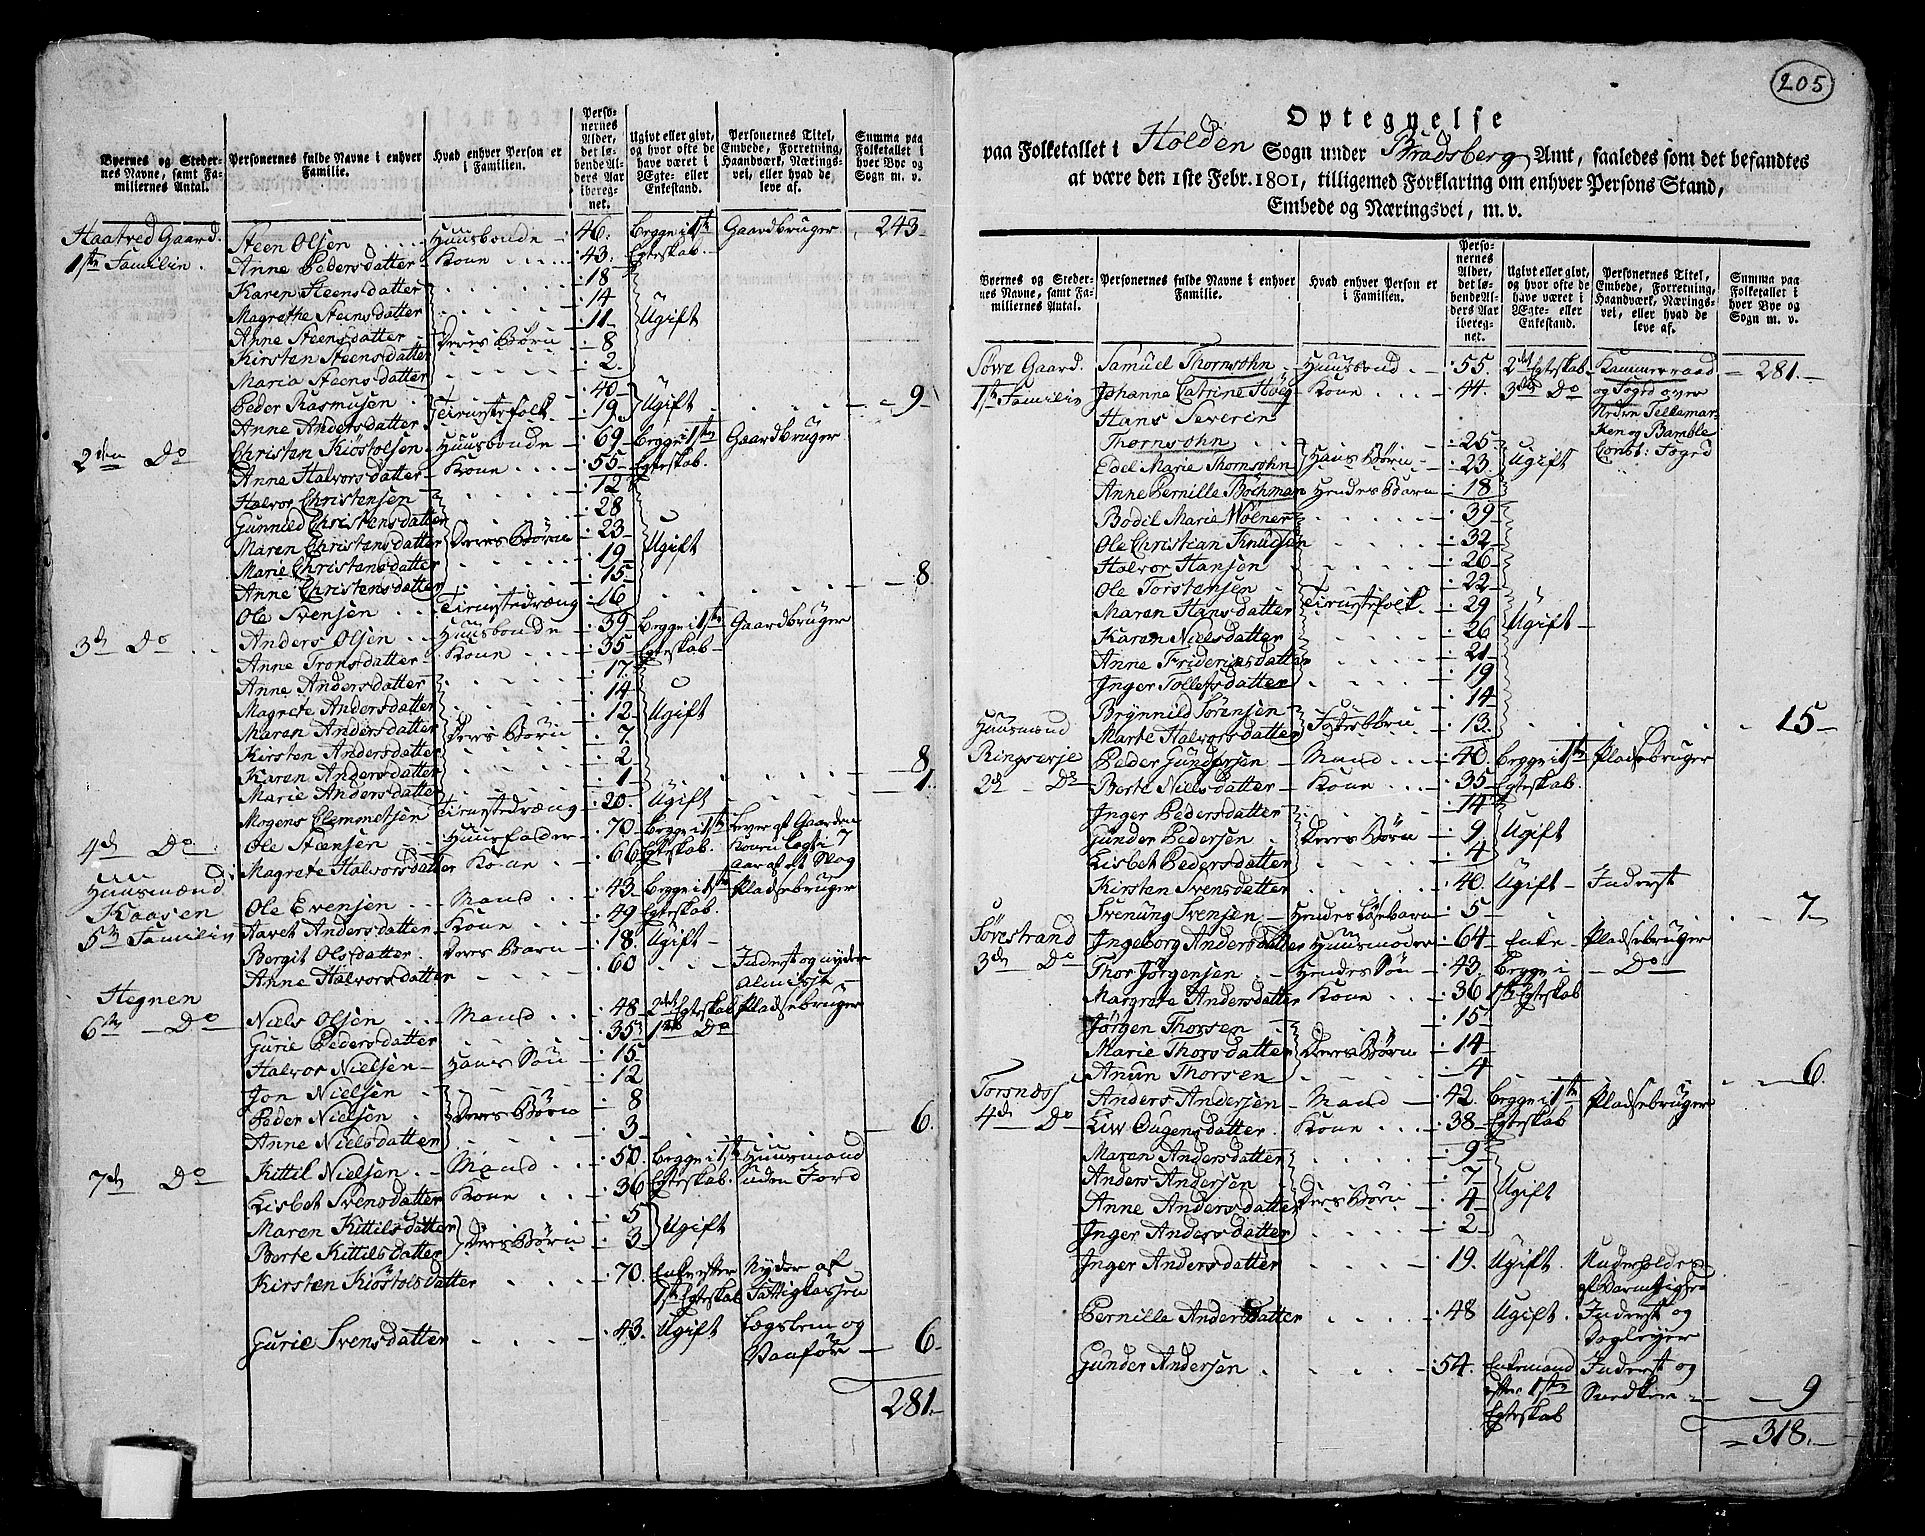 205
Byernes og Stedernes Navne, samt Familiernes Antal.
Personernes fulde Navne i enhver Familie.
Hvad enhver Person er i Familien.
Personernes Alder, det løbende Alders Aar iberegnet.
Ugivt eller givt, og hvor ofte de have været i Ægte- eller Enkestand.
Personernes Titel, Embede, Forretning, Haandværk, Næringsvei, eller hvad de leve af.
Summa paa Folketallet i hver Bye og Sogn m. v.
Haatved Gaard. Steen Olsen Huusbonde 46. begge i 1ste Gaardbruger 243
1ste Familie. Anne Pedersdatter Kone 43. Egteskab.
Karen Steensdatter 18
Magrethe Steinsdatter 14 Ugift
Anne Steensdatter 11
Kirsten Steensdatter Deres Børn 8
Maria Steensdatter 2.
Peder Rasmusen 40 Ugift 9
Anne Andersdatter Tienistefolk 19
2den Do Christen Kiöstolsen Huusbonde 69 begge i 1ste Gaardbruger
Anne Halvorsdatter Kone 55 Egteskab.
Halvor Christensen 12
Gunnild Christensdatter 28
Maren Christensdatter Deres Børn 23 Ugift
Marie Christensdatter 19
Anne Christensdatter 15 8
Ole Svensen Tienistedræng 16
3die Do Anders Olsen Huusbonde 39 begge i 1ste Gaardbruger
Anne Tronsdatter Kone 35 Egteskab
Anne Andersdatter 17
Magrete Andersdatter 14
Maren Andersdatter Deres Børn 12 Ugift
Kirsten Andersdatter 7
Karen Andersdatter 2 8
Marie Andersdatter 1 1.
Mogens Clemmetsen Tienistedræng 20. Ugift
4de Do Ole Steensen Huusfader 70. begge i 1ste Lever af Gaarden
Magrete Halvorsdatter Kone 66 Egteskab.
Huusmænd
Kaasen Ole Evensen Mand 43 begge i 1ste Pladsebruger
5te Familie Aavet Andersdatter Kone 49 Egteskab.
Bergit Olsdatter Deres Barn 18. Ugift
Anne Halvorsdatter 60 Inderst og nyder Almisse
Stegnen Niels Olsen Mand 48 2det Egteskab Pladsebruger
6te Do Gurie Pedersdatter 35 1ste Do
Halvor Nielsen Hans Søn 15
Jon Nielsen 12
Peder Nielsen Deres Børn 8
Anne Nielsdatter 3 6.
7de Do Kittil Nielsen Mand 50. begge i 1ste Huusmand
Lisbet Svensdatter Kone 36 Egteskab. uden Jord
Maren Kittilsdatter 5 Ugift
Berte Kittilsdatter Deres Børn 3
Kirsten Kiöstolsdatter 70. Enke efter Nyder af
1ste Egteskab Fattigkassen
Gurie Svensdatter 43. Ugift Lægslem og
Vanför 6
281.
Optegnelse
paa Folketallet i Holden Sogn under Bradsberg Amt, saaledes som det befandtes
at være den 1ste Febr. 1801, tilligemed Forklaring om enhver Persons Stand,
Embede og Næringsvei, m. v.
Byernes og Stedernes Navne, samt Familiernes Antal.
Personernes fulde Navne i enhver Familie.
Hvad enhver Person er i Familien.
Personernes Alder, det løbende Alders Aar iberegnet.
Ugivt eller givt, og hvor ofte de have været i Ægte- eller Enkestand.
Personernes Titel, Embede, Forretning, Haandværk, Næringsvei, eller hvad de leve af.
Summa paa Folketallet i hver Bye og Sogn m. v.
Søve Gaard. Samuel Thornsohn Huusbond 55. 2det Egteskab Kammerraad 281.
1ste Familie Johanne Catrine Høeg Kone 44. 3die Do og Foged over
Hans Severin Nedre Tellemar-
Thornsohn 25 ken og Bamble
Edel Marie Thornsohn Hans Børn 23 Ugift Const: Foged
Anne Pernille Böchman Hendes Barn 18
Bodil Marie Wölner 39
Ole Christian Knudsen 32
Halvor Hansen 26
Ole Torstensen 22
Maren Hansdatter Tienistefolk 29
Karen Nielsdatter 26 Ugift
Anne Friderigsdatter 21
Inger Tollefsdatter 19
Brynnild Sörensen 14
Huusmænd Marte Halvorsdatter Fosterbørn 13. 15
Ringsevje Peder Gundersen Mand 40. begge i 1ste Pladsebruger
2de Do Berte Nielsdatter Kone 35 Egteskab.
Inger Pedersdatter 14
Gunder Pedersen Deres Børn 9 Ugift
Lisbet Pedersdatter 4
Kirsten Svensdatter 40. Ugift Inderst
Svenung Svensen Hendes Løsebarn 5 7
Søvestrand Ingeborg Andersdatter Huusmoder 64 Enke Pladsebruger
3die Do Thor Jørgensen Hendes Søn 43. begge i Do
Margrete Andersdatter Kone 36 1ste Egteskab
Jørgen Thorsen 15
Marie Thorsdatter Deres Børn 14
Anun Thorsen 4 6.
Torsnæss Anders Andersen Mand 42. begge i 1ste Pladsebruger
4de Do Liw Ougensdatter Kone 38 Egteskab
Maren Andersdatter 9
Anders Andersen 7
Anne Andersdatter Deres Børn 4 Ugift
Inger Andersdatter 2
Inger Andersdatter 19. Ugift. Underholdes
af Barmhiertighed
Pernille Andersdatter 48 Ugift. Inderst og
Gunder Andersen 54. Enkemand Inderst og
efter 1ste Snedker 9
Egteskab
318.